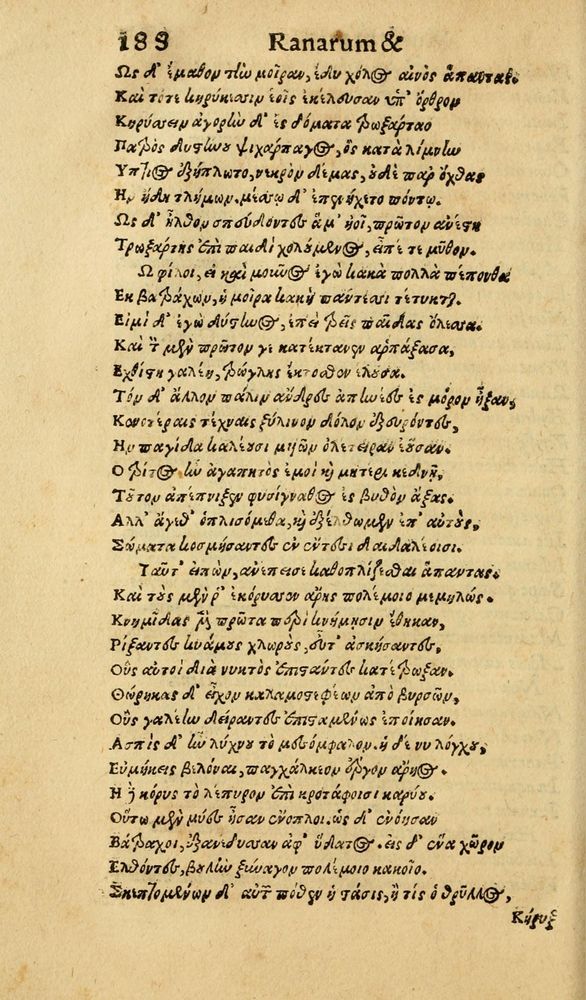 188 Ranarum &
Ως δ' ἔμαθον τὴν μοῖραν, ἔδυ χόλος αἰνὸς ἅπαντας.
Καὶ τότε κηρύκεσσιν ἑοῖς ἐκέλευσαν ὑπ' ὄρθρον
Κηρύσσειν ἀγορὴν δ' ἐς δόματα Τρωξάρταο
Πατρὸς δυστήνου ψιχάρπαγος, ὃς κατὰ λίμνην
Υπτιος ἐξήπλωτο, νεκρὸν δέμας, οὐδὲ παρ' ὄχθας
Ην ἤδη τλήμων. μέσσῳ δ' ἐπενήχετο πόντῳ.
Ως δ' ἦλθον σπεύδοντες ἅμ' ἠοῖ, πρῶτον ἀνέστη
Τρωξάρτης ἐπὶ παιδὶ χολούμενος, εἶπέ τε μῦθον.
Ω φίλοι, εἰ καὶ μοῦνος ἐγὼ κακὰ πολλὰ πέπονθα
Εκ βατράχων, ἡ μοῖρα κακὴ πάντεσσι τέτυκται.
Εἰμὶ δ' ἐγὼ δύστηνος, ἐπεὶ τρεῖς παῖδας ὄλεσσα.
Καὶ τὸν μὲν πρῶτον γε κατέκτανεν ἁρπάξασα,
Εχθίστη γαλέη, τρώγλης ἔκτοθεν ἑλοῦσα.
Τὸν δ' ἄλλον πάλιν ἄνδρες ἀπηνέες ἐς μόρον ἦξαν,
Καινοτέραις τέχναις ξύλινον δόλον ἐξευρόντες,
Ην παγίδα καλέουσι μυῶν ὀλέτειραν ἐοῦσαν.
Ο τρίτος ἦν ἀγαπητὸς ἐμοὶ καὶ μητέρι κεδνῇ,
Τοῦτον ἀπέπνιξεν φυσίγναθος ἐς βυθὸν ἄξας.
Αλλ' ἄγεθ' ὁπλισόμεθα, καὶ ἐξέλθωμεν ἐπ' αὐτοὺς,
Σώματα κοσμήσαντες ἐν ἔντεσι δαιδαλέοισι.
Ταῦτ' εἰπὼν, ἀνέπεισε καθοπλίζεσθαι ἅπαντας.
Καὶ τοὺς μὲν ῥ' ἐκόρυσσεν ἄρης πολέμοιο μεμηλώς.
Κνημῖδας μὲν πρῶτα περὶ κνήμῃσιν ἔθηκαν,
Ρίξαντες κυάμους χλωροὺς, εὖτ' ἀσκήσαντες,
Οὓς αὐτοὶ διὰ νυκτὸς ἐπιστάντες κατέτρωξαν.
Θώρηκας δ' εἶχον καλαμοστεφέων ἀπὸ βυρσῶν,
Οὓς γαλέην δείραντες ἐπισταμένως ἐποίησαν.
Ασπὶς δ' ἦν λύχνου τὸ μεσόμφαλον. ἡ δέ νυ λόγχη,
Εὐμήκεις βελόναι, παγχάλκεον ἔργον ἄρηος.
Η δὲ κόρυς τὸ λέπυρον ἐπὶ κροτάφοισι καρύου.
Οὕτω μὲν μύες ἦσαν ἔνοπλοι. ὡς δ' ἐνόησαν
Βάτραχοι, ἐξανέδυσαν ἀφ' ὕδατος. εἰς δ' ἕνα χῶρον
Ελθόντες, βουλὴν ξύναγον πολέμοιο κακοῖο.
Σκεπτομένων δ' αὐτῶν πόθεν ἡ στάσις, ἢ τίς ὁ θρύλλος,
Κήρυξ